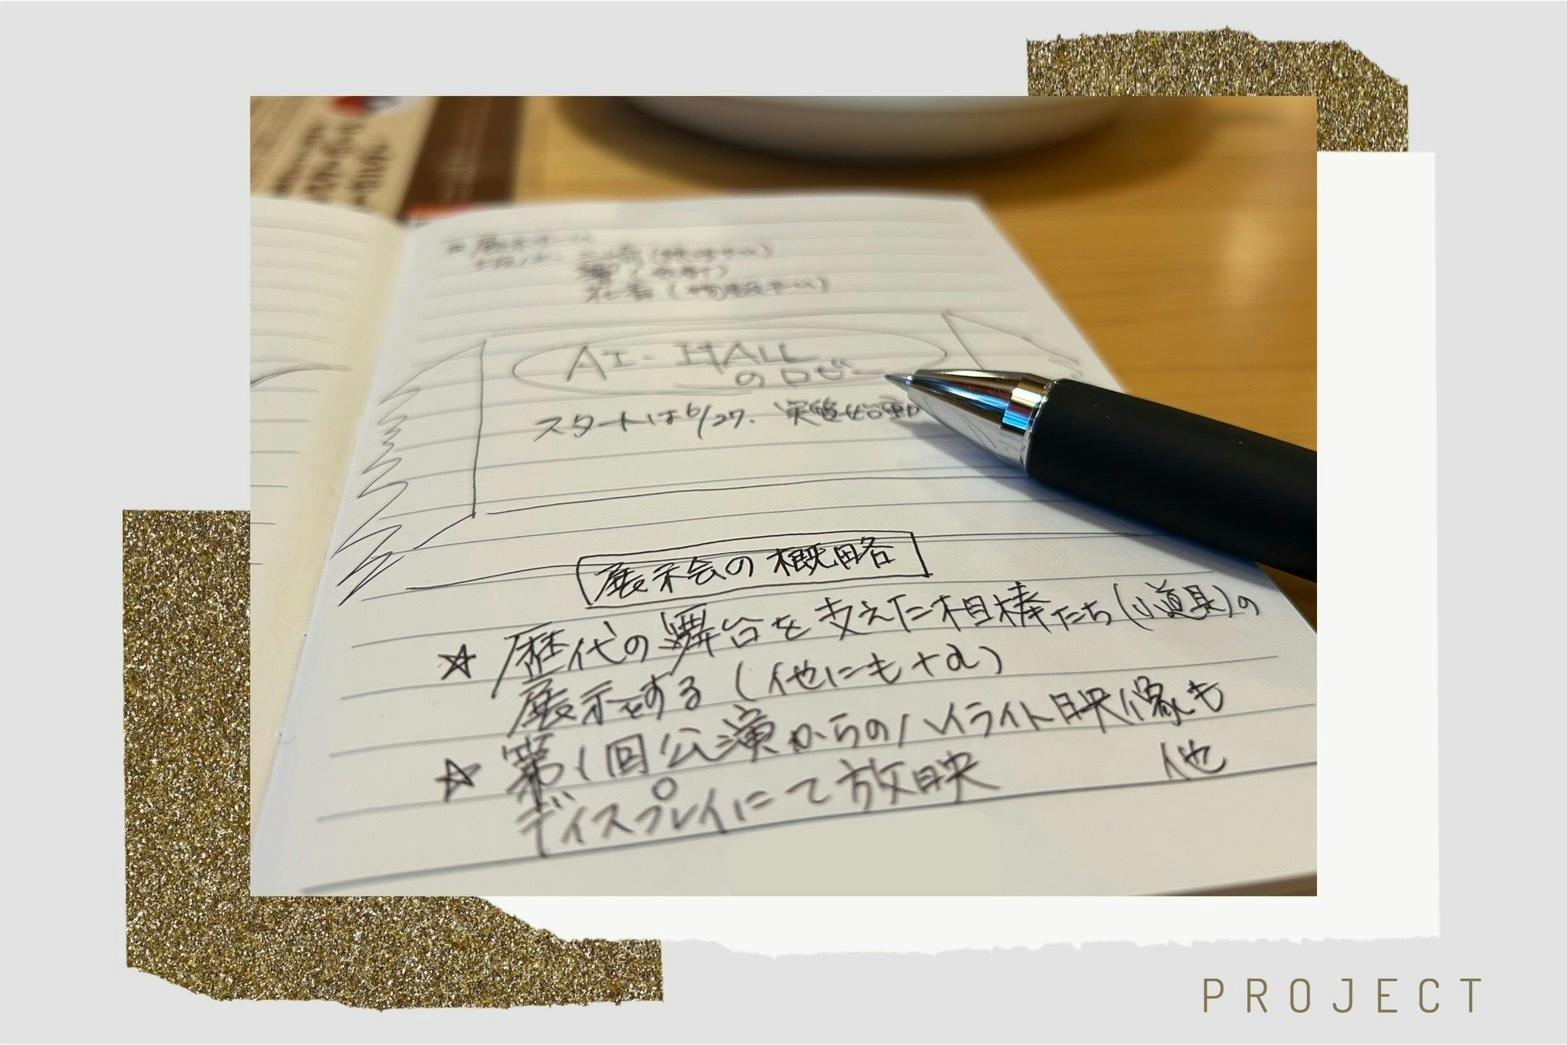 AI-HALL
のロビー
スタートは6/27. 実質始動
展示会の概略
☆ 歴代の舞台を支えた相棒たち(小道具)の
展示をする (他にも+α)
☆ 第1回公演からのハイライト映像も
ディスプレイにて放映 他
PROJECT